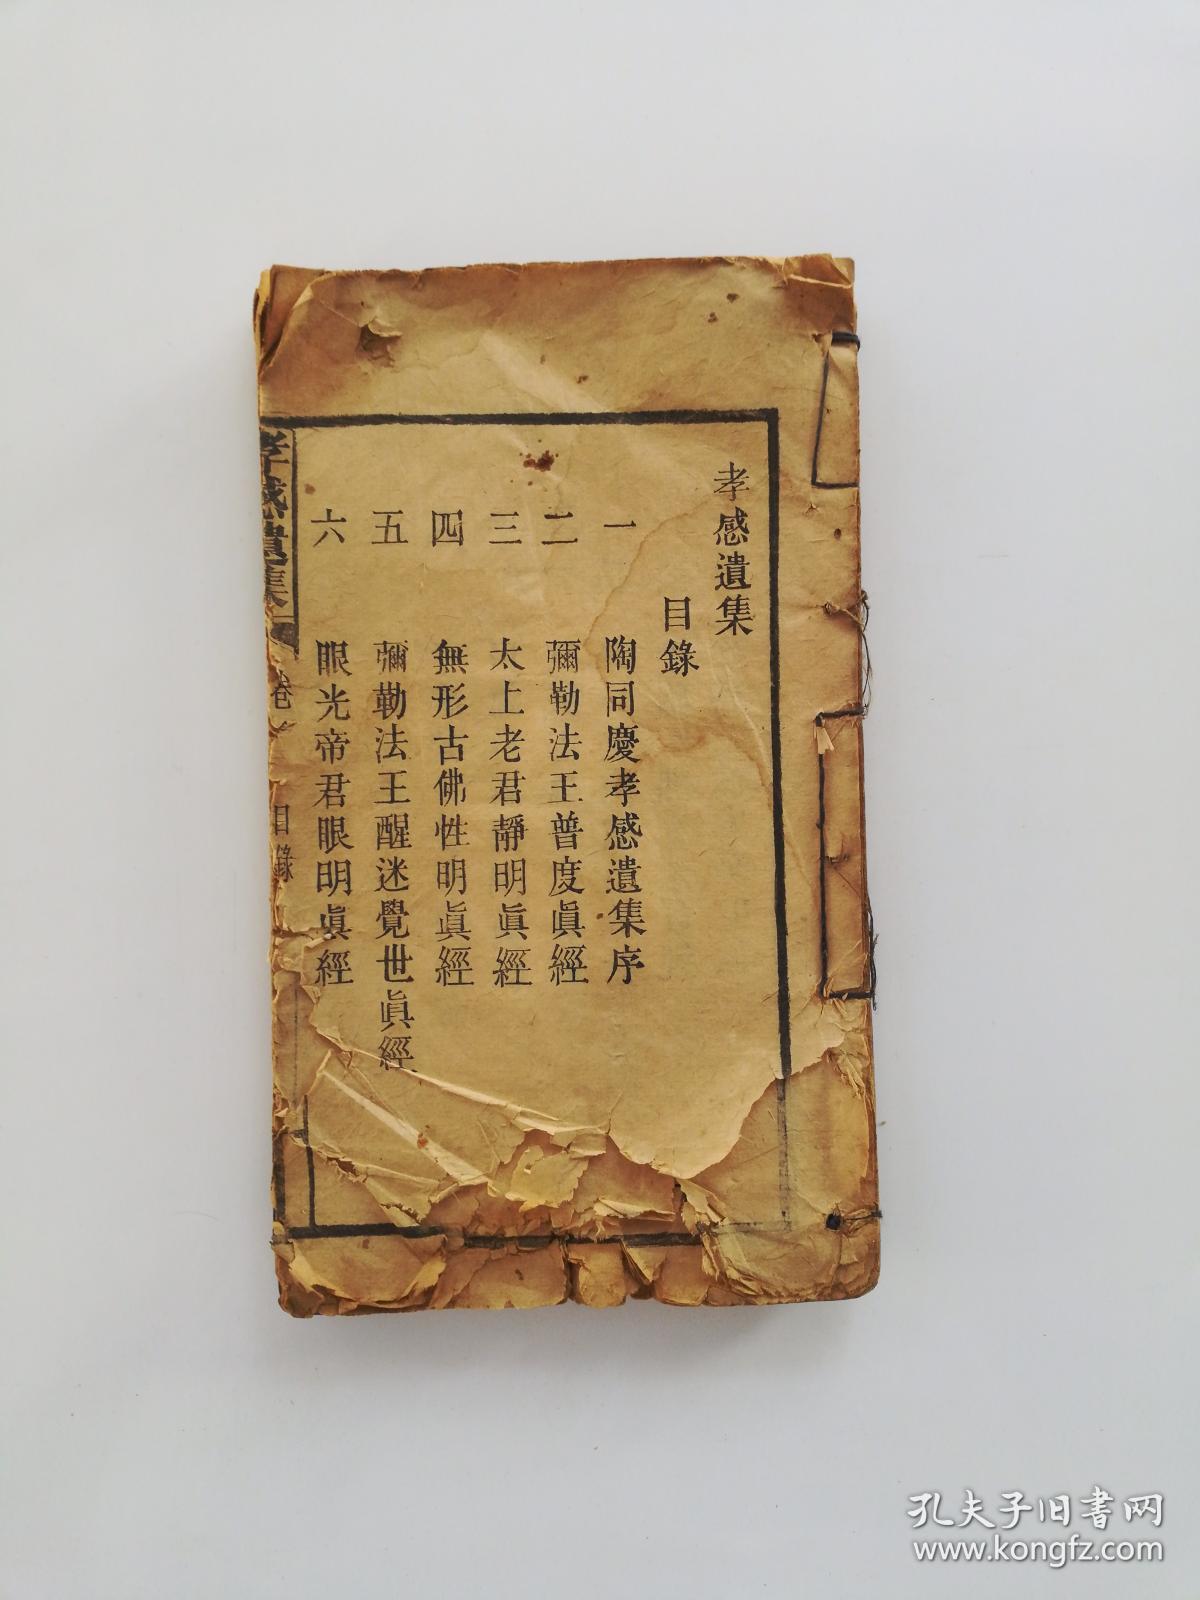 孝感遺集
目錄
一 陶同慶孝感遺集序
二 彌勒法王普度眞經
三 太上老君靜明眞經
四 無形古佛性明眞經
五 彌勒法王醒迷覺世眞經
六 眼光帝君眼明眞經
孝感遺集 卷 目錄
孔夫子旧书网
www.kongfz.com